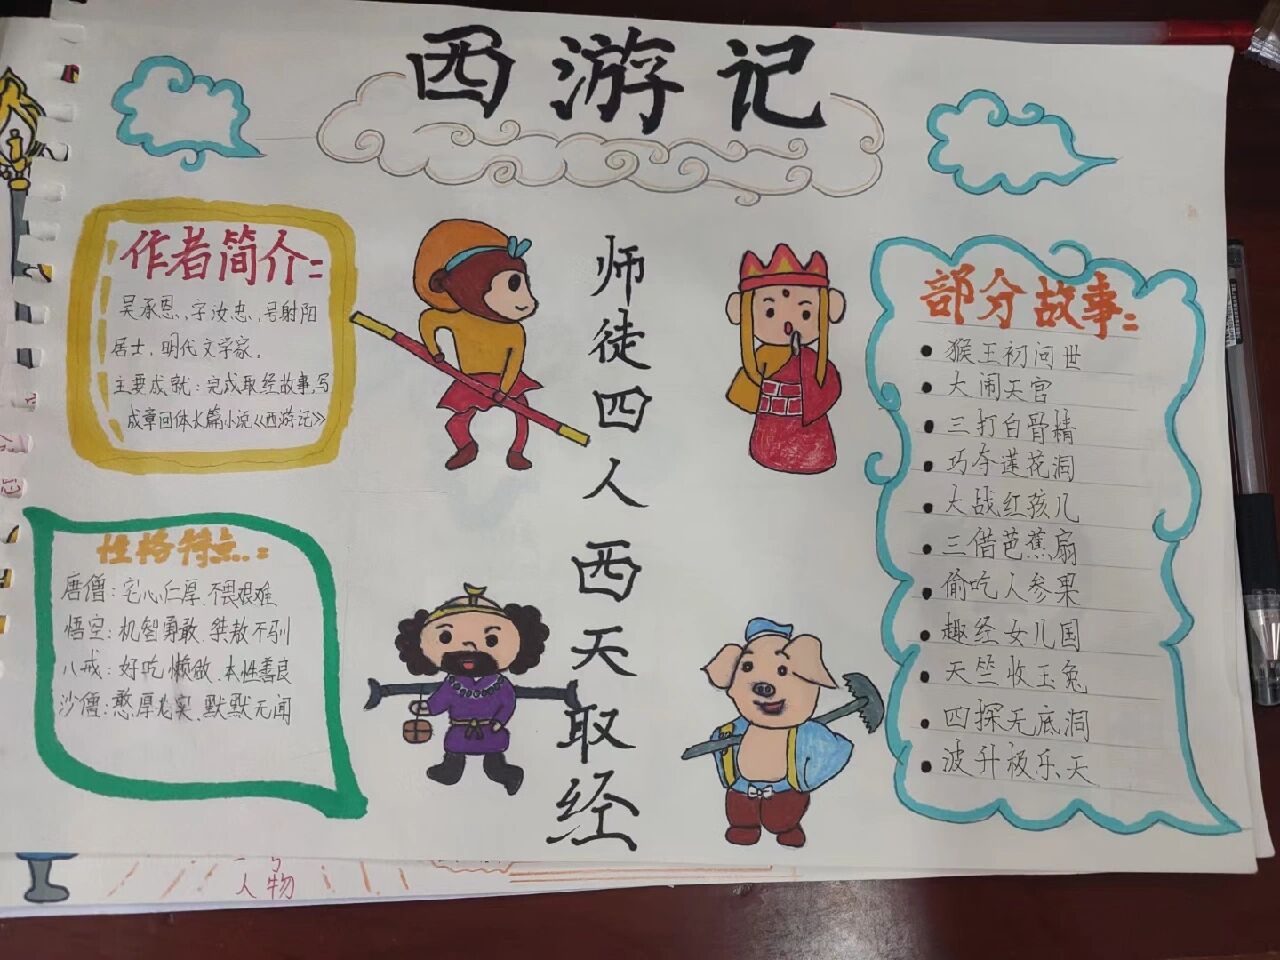 西游记
作者简介:
吴承恩,字汝忠,号射阳
居士,明代文学家,
主要成就:完成取经故事,写
成章回体长篇小说《西游记》
性格特点:
唐僧:宅心仁厚、不畏艰难
悟空:机智勇敢、桀敖不驯
八戒:好吃懒做、本性善良
沙僧:憨厚老实、默默无闻
师徒四人西天取经
部分故事:
猴王初问世
大闹天宫
三打白骨精
巧夺莲花洞
大战红孩儿
三借芭蕉扇
偷吃人参果
趣经女儿国
天竺收玉兔
四探无底洞
波升极乐天
人物